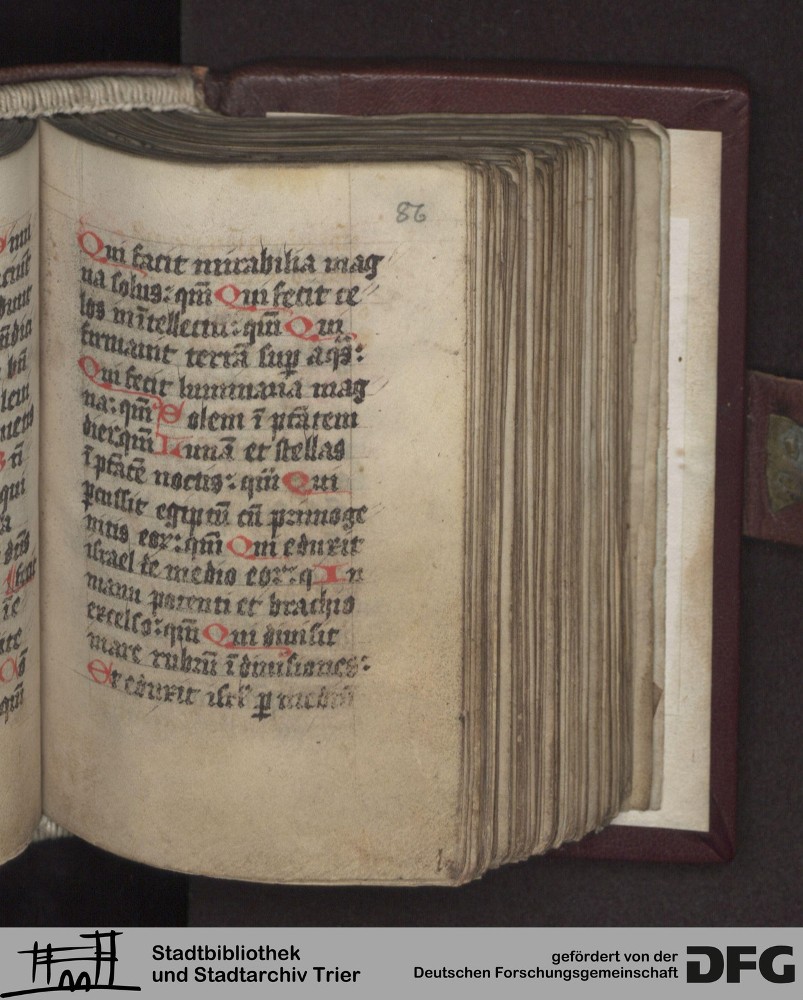 86
Qui facit mirabilia mag
na solus: qm̄ Qui fecit ce
los ī ītellectu: qm̄ Qui
firmauit terrā sup̄ aq̄s:
Qui fecit luminaria mag
na: qm̄ Solem ī ptātem
diei: qm̄ Lunā et stellas
ī ptātē noctis: qm̄ Qui
ꝑcussit egiptū cū primoge
nitis eoꝝ: qm̄ Qui eduxit
israel de medio eoꝝ: q In
manu potenti et brachio
excelso: qm̄ Qui diuisit
mare rubrū ī diuisiones:
Et eduxit isrl̄ ꝑ mediū
Stadtbibliothek
und Stadtarchiv Trier
gefördert von der
Deutschen Forschungsgemeinschaft
DFG